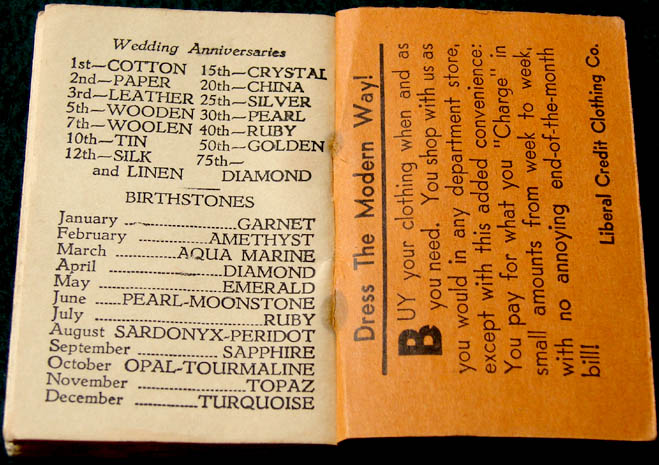 Wedding Anniversaries
1st—COTTON 15th—CRYSTAL
2nd—PAPER 20th—CHINA
3rd—LEATHER 25th—SILVER
5th—WOODEN 30th—PEARL
7th—WOOLEN 40th—RUBY
10th—TIN 50th—GOLDEN
12th—SILK 75th—
and LINEN DIAMOND
BIRTHSTONES
January ........ GARNET
February ........ AMETHYST
March ........ AQUA MARINE
April ........ DIAMOND
May ........ EMERALD
June ....PEARL-MOONSTONE
July ........ RUBY
August SARDONYX-PERIDOT
September ........ SAPPHIRE
October OPAL-TOURMALINE
November ........ TOPAZ
December ........ TURQUOISE
Dress The Modern Way!
BUY your clothing when and as
you need. You shop with us as
you would in any department store,
except with this added convenience:
You pay for what you "Charge" in
small amounts from week to week,
with no annoying end-of-the-month
bill!
Liberal Credit Clothing Co.